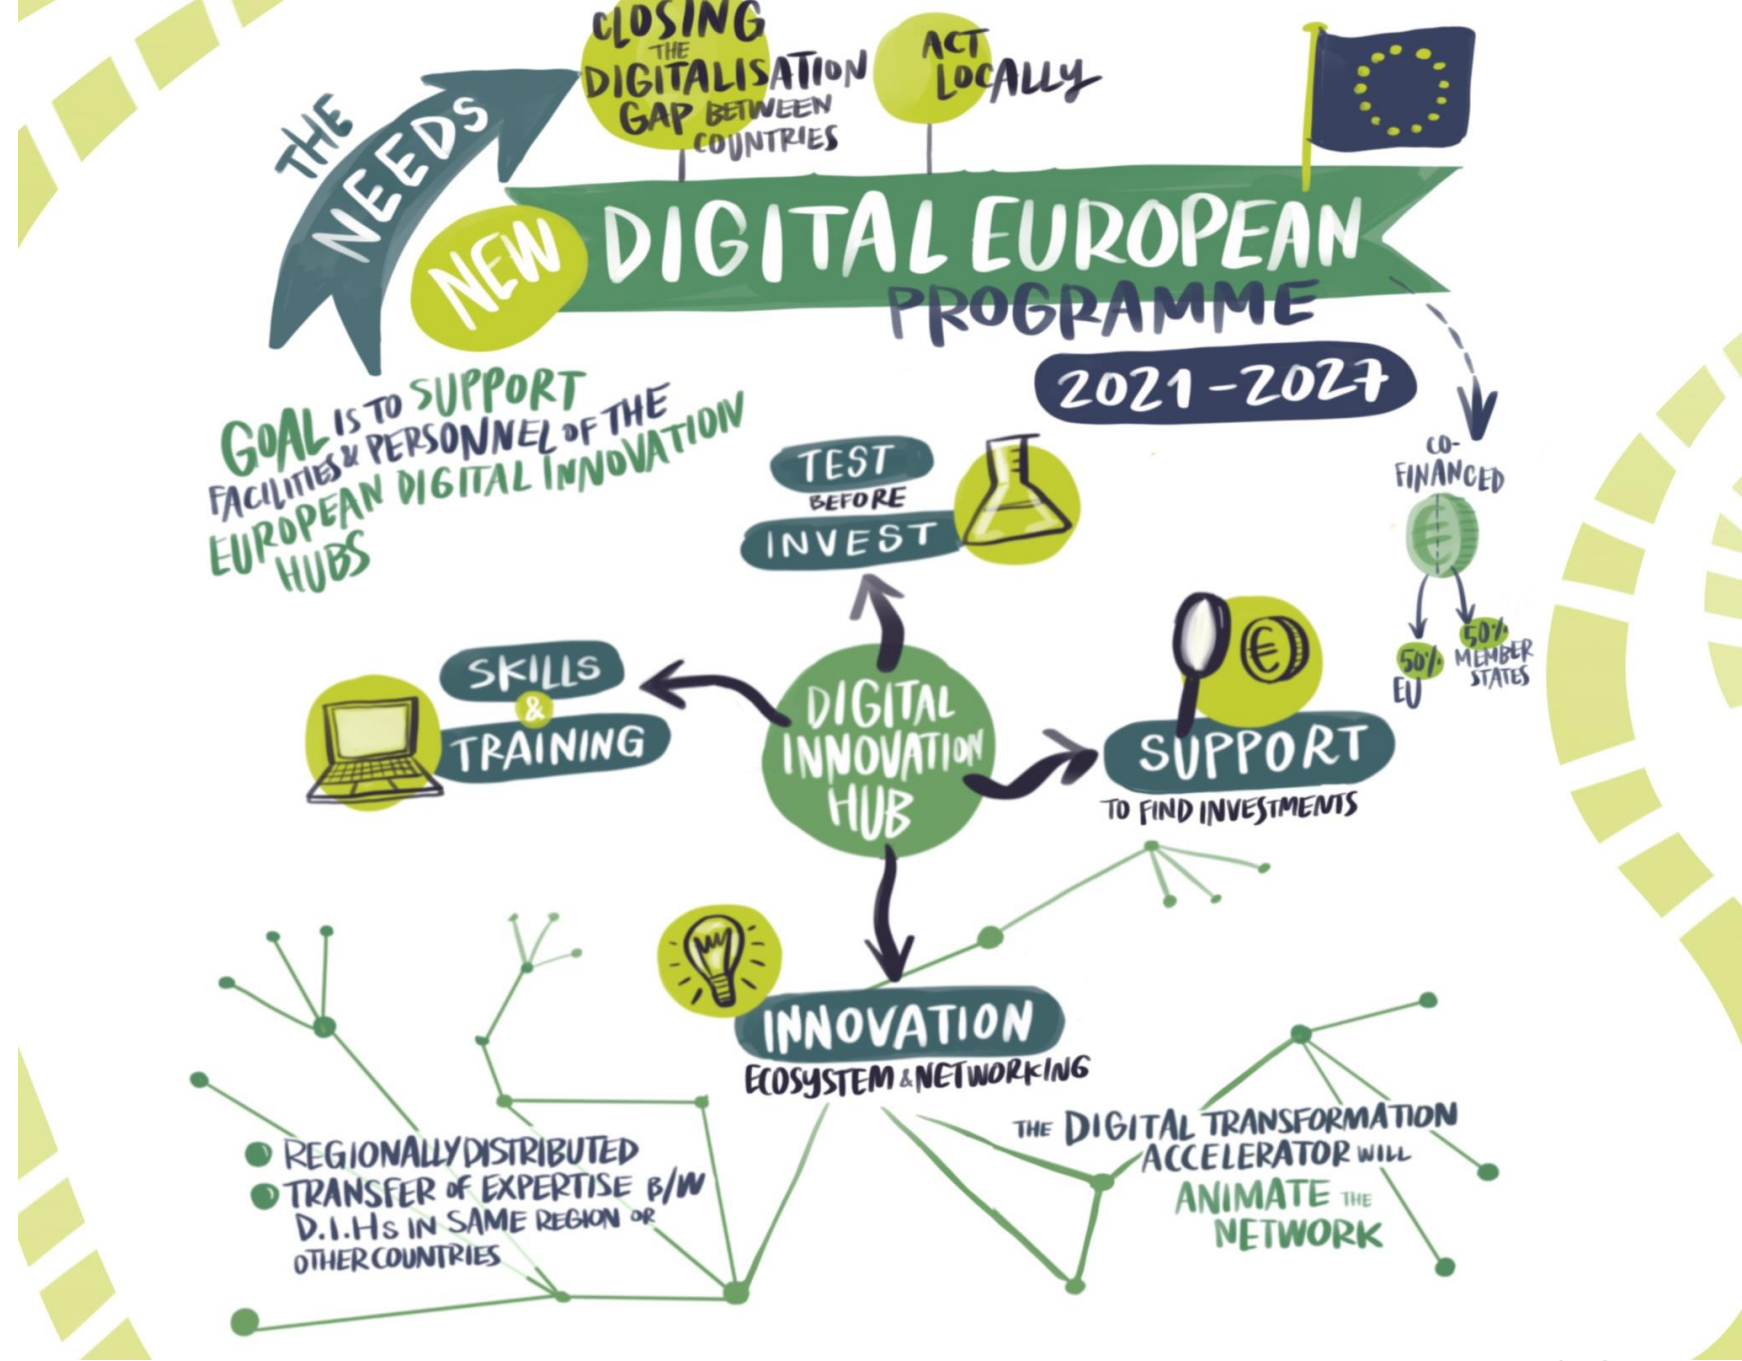 CLOSING
THE
DIGITALISATION
GAP BETWEEN
COUNTRIES
ACT
LOCALLY
THE
NEEDS
NEW
DIGITAL EUROPEAN
PROGRAMME
2021-2027
GOAL IS TO SUPPORT
FACILITIES & PERSONNEL OF THE
EUROPEAN DIGITAL INNOVATION
HUBS
CO-
FINANCED
€
50%
EU
50%
MEMBER
STATES
TEST
BEFORE
INVEST
SKILLS
&
TRAINING
DIGITAL
INNOVATION
HUB
€
SUPPORT
TO FIND INVESTMENTS
INNOVATION
ECOSYSTEM & NETWORKING
REGIONALLY DISTRIBUTED
TRANSFER OF EXPERTISE B/W
D.I.HS IN SAME REGION OR
OTHER COUNTRIES
THE DIGITAL TRANSFORMATION
ACCELERATOR WILL
ANIMATE THE
NETWORK